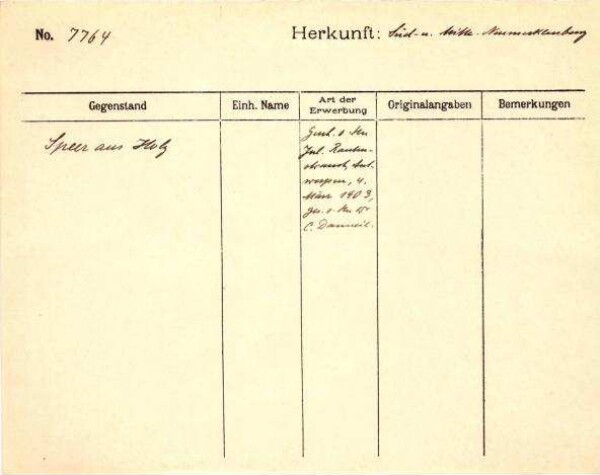 No. 7764 Herkunft: Süd- u. Mittl. Neumecklenburg
Gegenstand Einh. Name Art der Erwerbung Originalangaben Bemerkungen
Speer aus Holz
Gesch. v. Hrn
Jul. Rauten-
strauch, Ant-
werpen, 4.
März 1903,
ges. v. Hrn
C. Danneil.